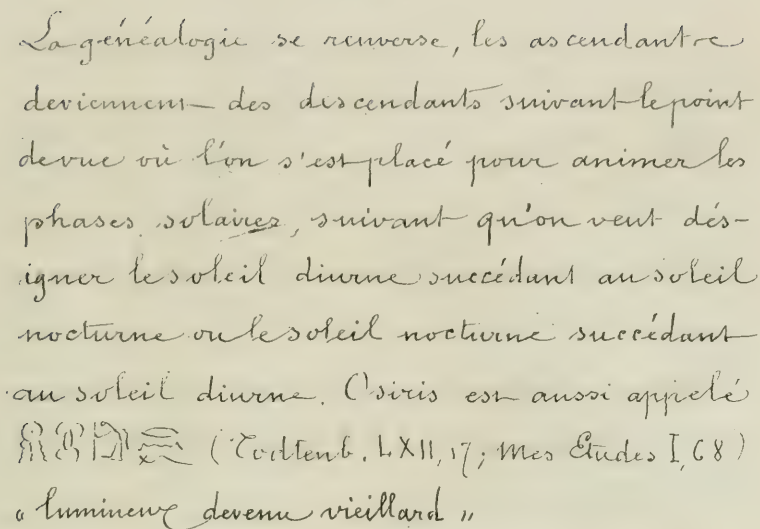 La généalogie se renverse, les ascendants
deviennent des descendants suivant le point
de vue où l'on s'est placé pour animer les
phases solaires, suivant qu'on veut dés-
igner le soleil diurne succédant au soleil
nocturne ou le soleil nocturne succédant
au soleil diurne. Osiris est aussi appelé
(Todtenb. LXII, 17; Mes Etudes I, 68)
"lumineux devenu vieillard"